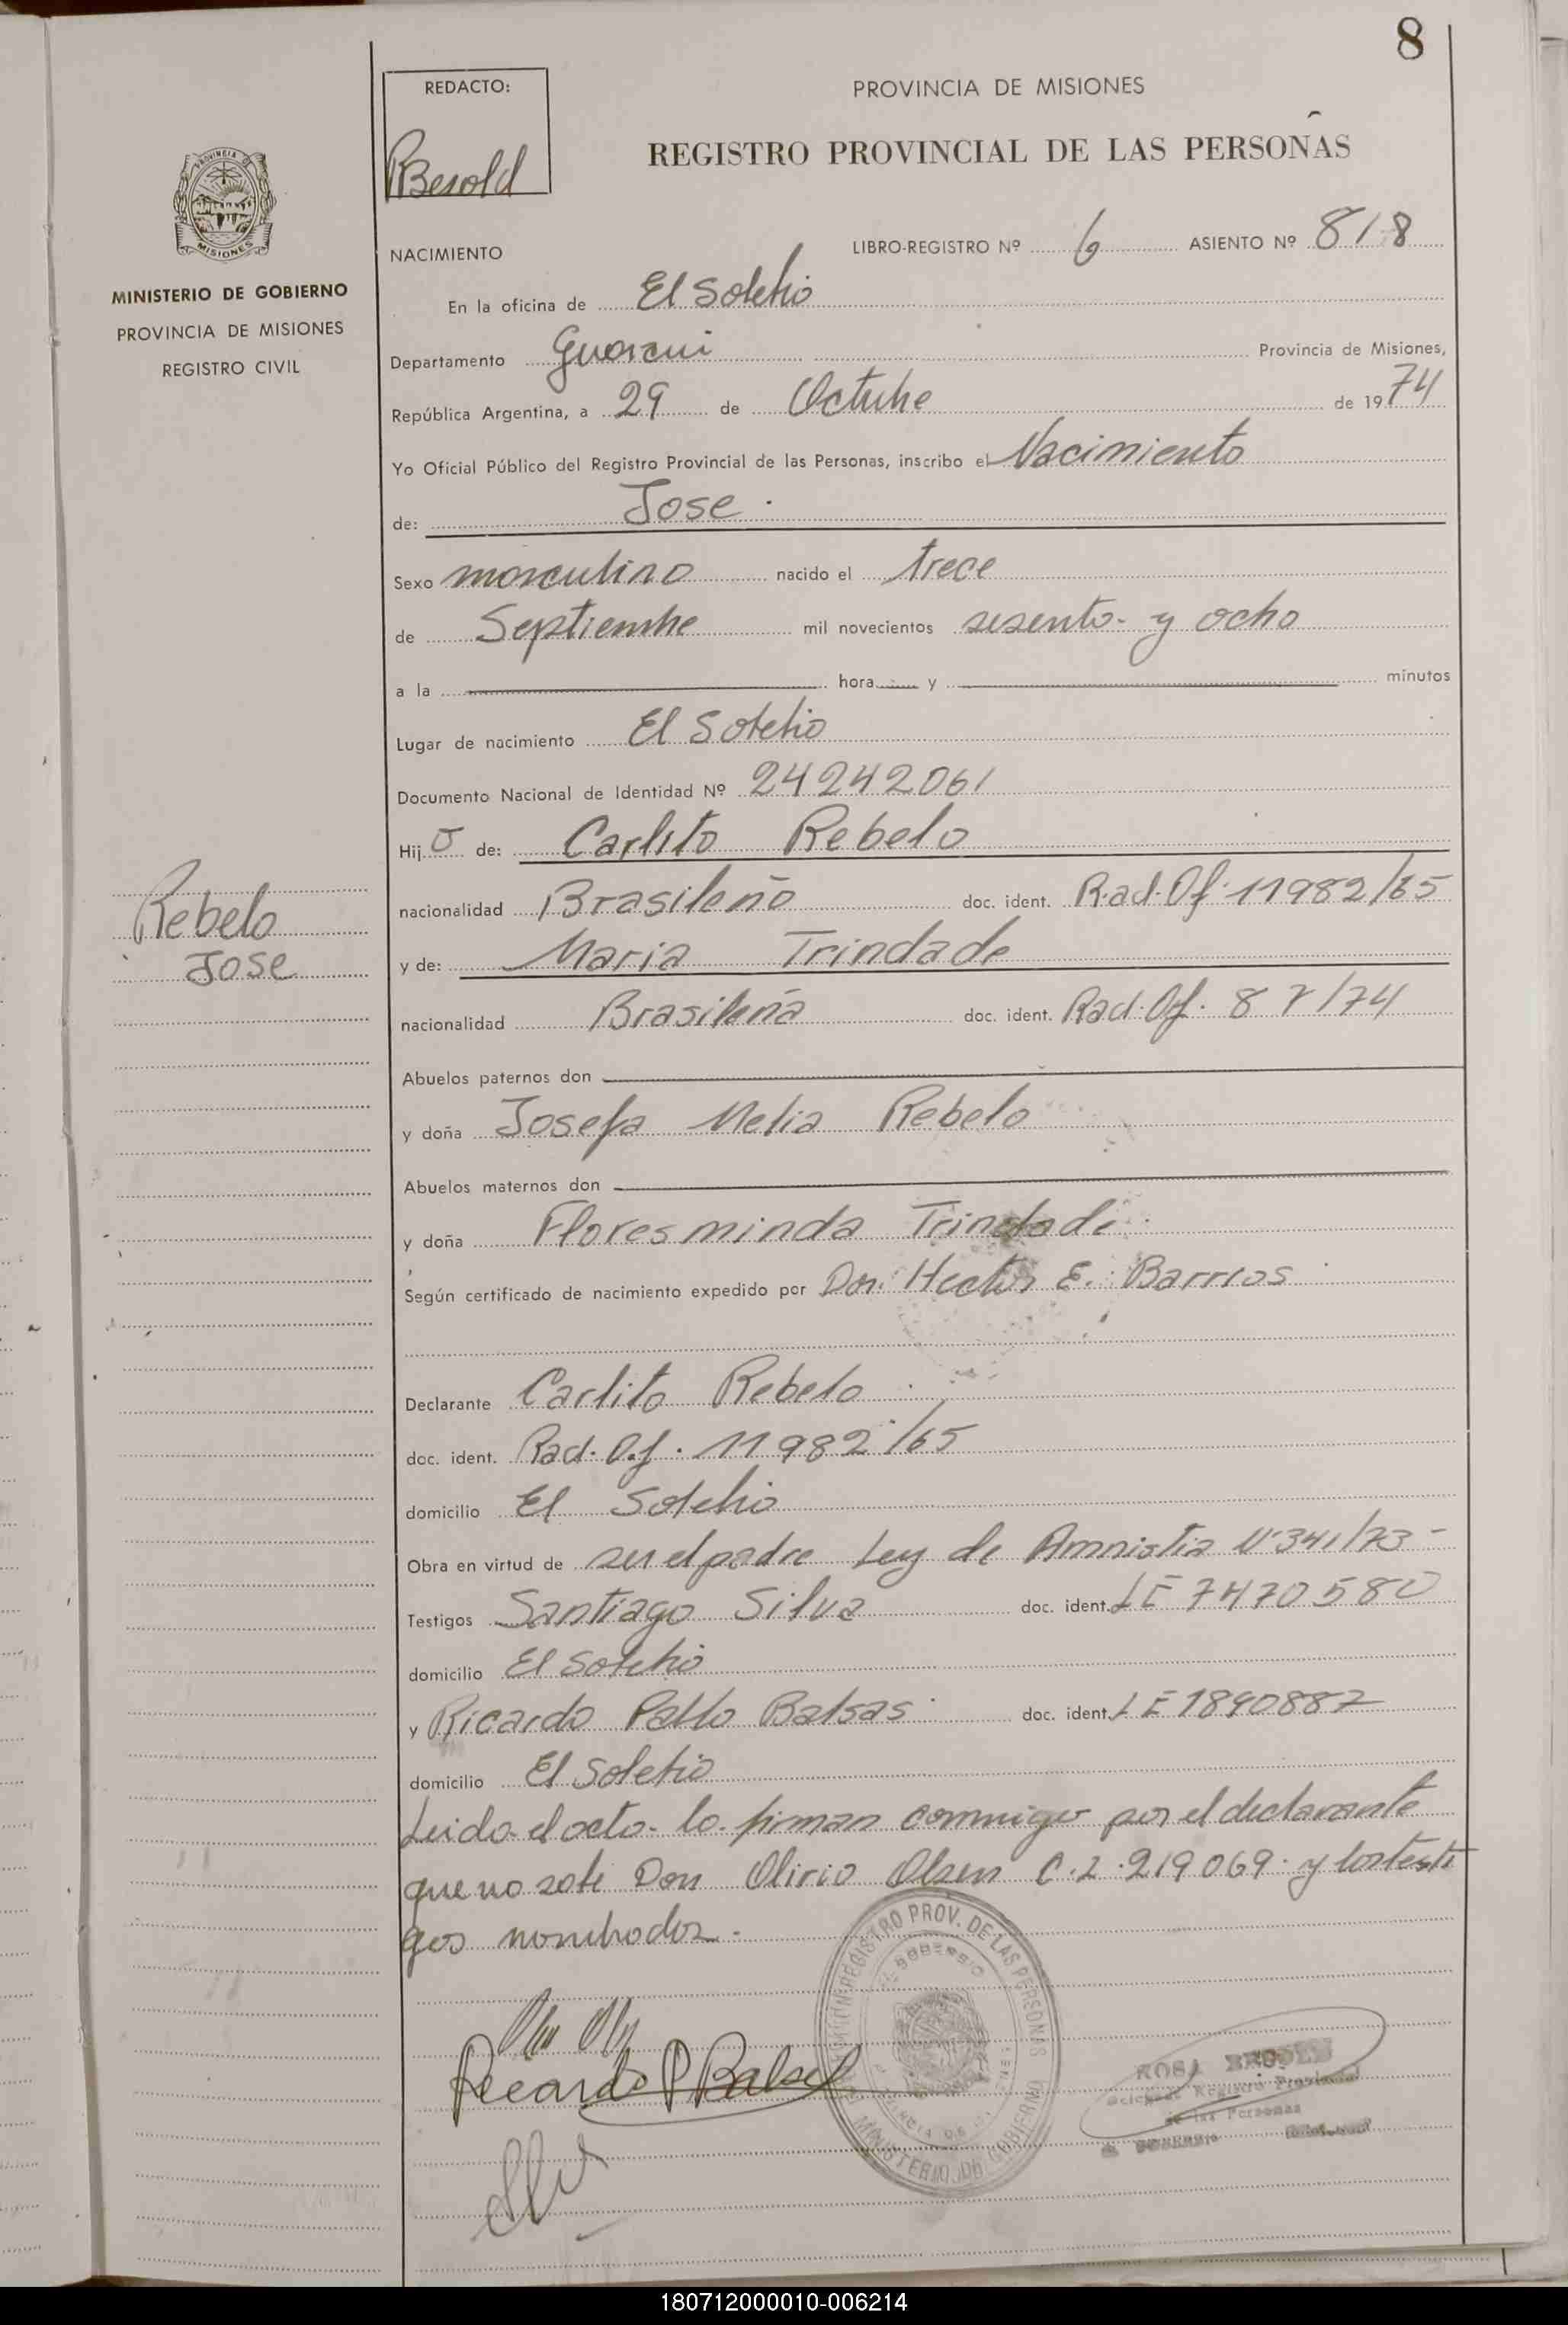 8
REDACTO:
PROVINCIA DE MISIONES
REGISTRO PROVINCIAL DE LAS PERSONAS
PROVINCIA DE
MISIONES
MINISTERIO DE GOBIERNO
PROVINCIA DE MISIONES
REGISTRO CIVIL
NACIMIENTO LIBRO-REGISTRO Nº 6 ASIENTO Nº 818
En la oficina de El Soberbio
Departamento Guarani Provincia de Misiones,
República Argentina, a 29 de Octubre de 1974
Yo Oficial Público del Registro Provincial de las Personas, inscribo el Nacimiento
de: Jose
Sexo masculino nacido el trece
de Septiembre mil novecientos sesenta y ocho
a la hora y minutos
Lugar de nacimiento El Soberbio
Documento Nacional de Identidad Nº 24242061
Hijo de: Carlito Rebelo
nacionalidad Brasileño doc. ident. Rad. Of. 11982/65
Rebelo
Jose
y de: Maria Trindade
nacionalidad Brasileña doc. ident. Rad. Of. 87/74
Abuelos paternos don
y doña Josefa Melia Rebelo
Abuelos maternos don
y doña Floresminda Trindade
Según certificado de nacimiento expedido por Don Hector E. Barrios
Declarante Carlito Rebelo
doc. ident. Rad. Of. 11982/65
domicilio El Soberbio
Obra en virtud de ser el padre Ley de Amnistia Nº 341/73
Testigos Santiago Silva doc. ident. LE 7470580
domicilio El Soberbio
y Ricardo Pablo Balsas doc. ident. LE 1890887
domicilio El Soberbio
Leida el acta lo firman conmigo por el declarante
que no sabe Don Olirio Olsen C.I. 219069 y los testi
gos nombrados.
REGISTRO PROV. DE LAS PERSONAS
EL SOBERBIO
MINISTERIO DE GOBIERNO
Ricardo P Balsas
ROSA
Registro Provincial
de las Personas
180712000010-006214